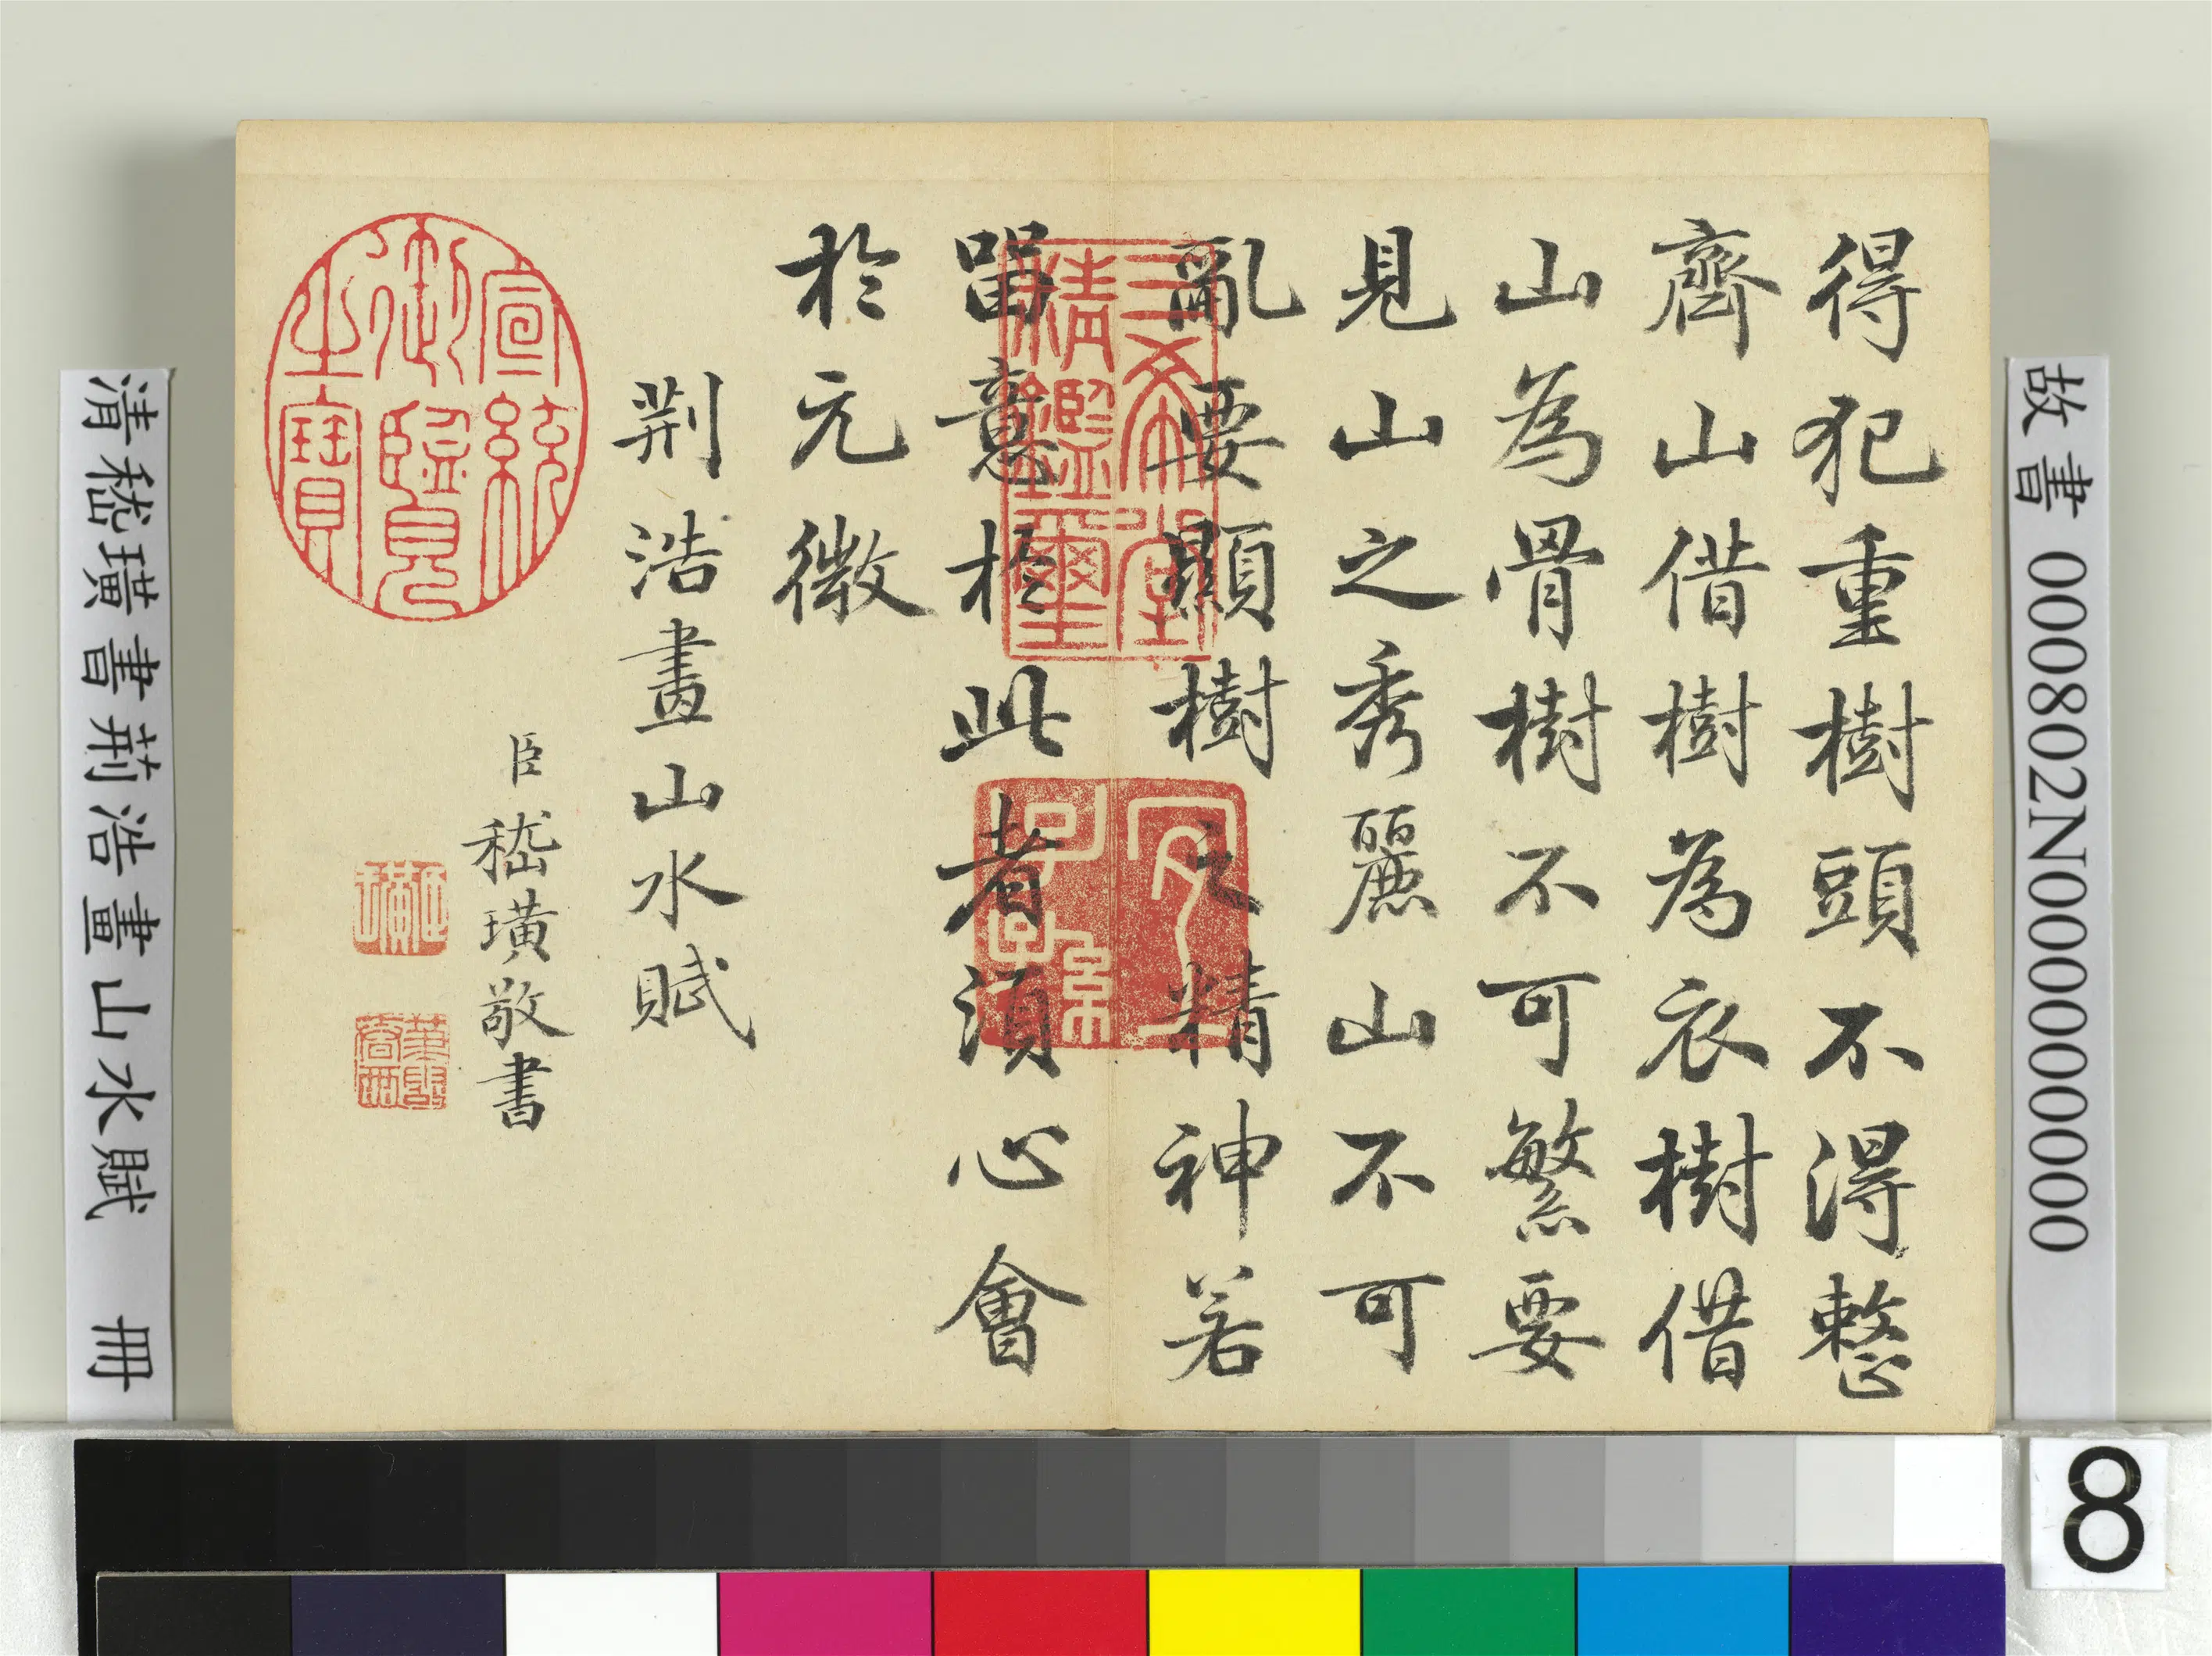 得犯重樹頭不得整
齊山借樹為衣樹借
山為骨樹不可繁要
見山之秀麗山不可
亂要顯樹之精神若
留意於此者須心會
於元微
荆浩畫山水賦
臣嵇璜敬書
三希堂
精鑑璽
宜
子孫
宣統
御覽
之寶
臣璜
故書 000802N000000000
清嵇璜書荊浩畫山水賦 冊
8